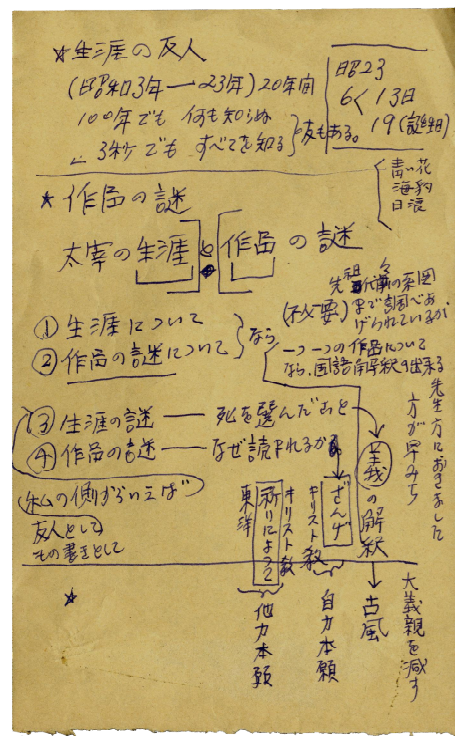 ☆生涯の友人
(昭和3年—23年)20年間
100年でも 何も知らぬ
〃 3秒でも すべてを知る
友もある。
昭23
6く13日
19(誕生日)
青い花
海豹
日浪
★作品の謎
太宰の生涯と作品の謎
①生涯について
②作品の謎について
なら
(必要)
先祖代々の系図
まで調べあ
げられているが、
一つ一つの作品について
なら、国語解釈の出来る
先生方におきました
方が早みち
③生涯の謎——死を選んだあと
④作品の謎——なぜ読まれるか
私の側からいえば
友人として
もの書きとして
義の解釈
ざんげ
キリスト教
キリスト教
祈りによって
東洋
自力本願
他力本願
古風
大義親を滅す
☆